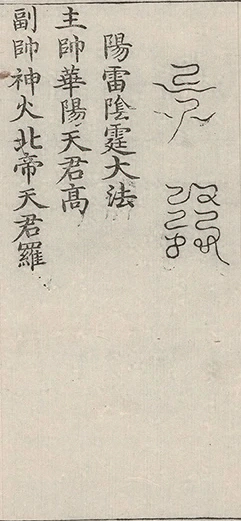 陽雷陰霆大法
主帥華陽天君高
副帥神火北帝天君羅